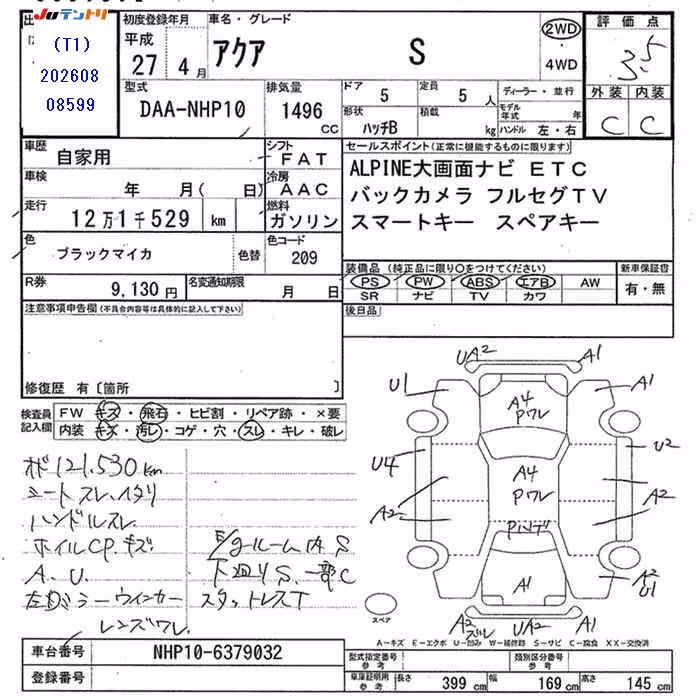 Juテントリ
(T1)
202608
08599
初度登録年月
平成
27年
4月
車名・グレード
アクア S
2WD
・
4WD
評価点
3.5
外装 内装
C C
型式
DAA-NHP10
排気量
1496
CC
ドア 5
定員 5人
形状 ハッチB
積載 kg
ディーラー・並行
モデル年式 年
ハンドル 左・右
車歴 自家用
シフト FAT
車検 年 月( 日)
冷房 AAC
走行 12万1千529 km
燃料 ガソリン
色 ブラックマイカ 色替
色コード 209
R券 9,130円
名変通知期限 月 日
セールスポイント(正常に機能するものに限ります)
ALPINE大画面ナビ ETC
バックカメラ フルセグTV
スマートキー スペアキー
装備品(純正品に限り○をつけてください)
PS PW ABS エアB AW
SR ナビ TV カワ
新車保証書
有・無
後日品
注意事項申告欄(不具合内容等は具体的に記入して下さい)
修復歴 有〔箇所 〕
検査員記入欄
FW キズ・飛石・ヒビ割・リペア跡・×要
内装 キズ・汚レ・コゲ・穴・スレ・キレ・破レ
メーター 121,530km
シートスレ、ヘタリ
ハンドルスレ
ホイルCP.キズ
A.U.
左ドアミラーウィンカー
レンズワレ
E/gルーム内S
下廻りS、一部C
スタットレスT
UA2 A1
U1 A4 Pワレ A1
U4 A4 Pワレ U2
A2 A2
A1 A2 U1
A2 ズレ UA2 A1
スペア
A-キズ E-エクボ U-凹み W-補修跡 S-サビ C-腐食 XX-交換済
車台番号 NHP10-6379032
登録番号
型式指定番号 参考
類別区分番号 参考
車庫証明用参考
長さ 399cm
幅 169cm
高さ 145cm